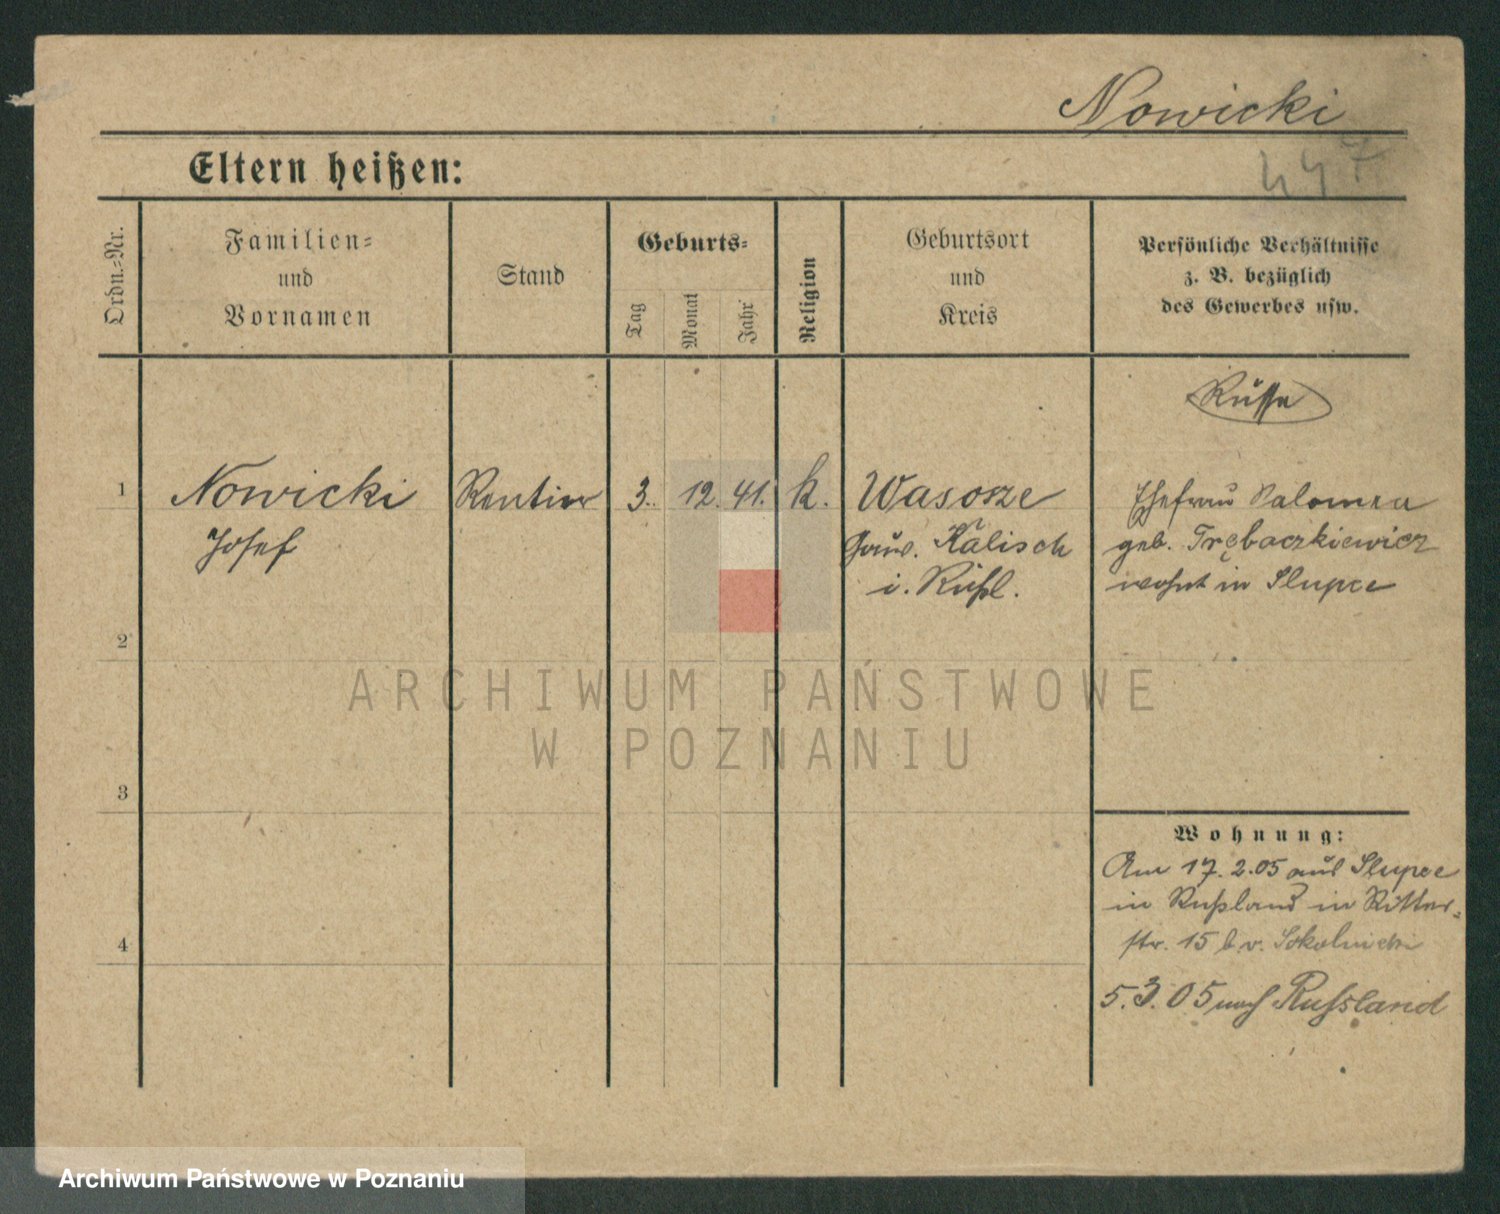 Nowicki
447
Eltern heißen:
Ordn.-Nr.
Familien-
und
Vornamen
Stand
Geburts-
Tag
Monat
Jahr
Religion
Geburtsort
und
Kreis
Persönliche Verhältnisse
z. B. bezüglich
des Gewerbes usw.
Russe
1
Nowicki
Josef
Rentier
3.
12.
41.
k.
Wasosze
Gouv. Kalisch
i. Rußl.
Ehefrau Salomea
geb. Trębaczkiewicz
wohnt in Slupce
2
3
4
Wohnung:
Am 17.2.05 aus Slupce
in Rußland in Ritter-
str. 15 b. v. Sokolnicki
5.3.05 nach Russland
ARCHIWUM PAŃSTWOWE
W POZNANIU
Archiwum Państwowe w Poznaniu